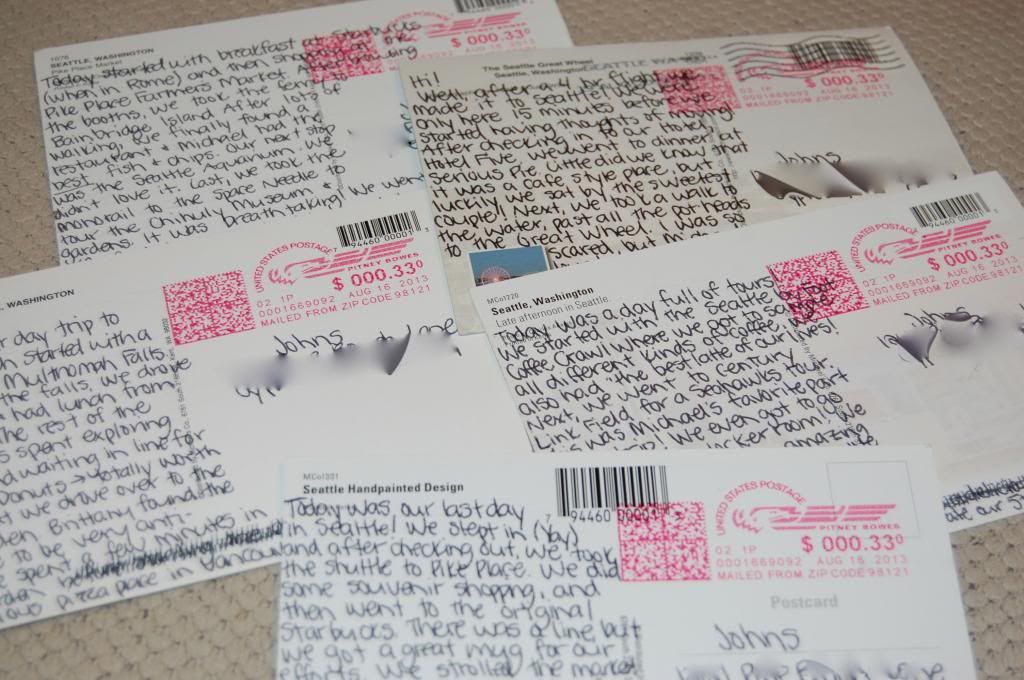 1076
SEATTLE, WASHINGTON
Pike Place Market
Today started with breakfast at Starbucks
(when in Rome) and then
Pike Place Farmers Market. After
the booths, we took the ferry to
Bainbridge Island. After lots of
walking, we finally found a
restaurant & michael had the
best fish & chips. Our next stop
was the Seattle Aquarium. We
didn't love it. Last, we took the
monorail to the Space Needle to
tour the Chihuly Museum &
gardens. It was breathtaking! We went
$ 000.33⁰
AUG 16 2013
The Seattle Great Wheel
Seattle, Washington
Hi!
Well, after a 4 hour flight we
made it to Seattle. We were
only here 15 minutes before we
started having thoughts of moving
After checking in to our Hotel,
Hotel Five, we went to dinner at
Serious Pie. Little did we know that
it was a cafe style place, but
luckily, we sat by the sweetest
couple! Next, we took a walk to
the water, past all the pot heads
to the Great Wheel. I was so
scared, but
$ 000.33⁰
02 1P
0001669092 AUG 16 2013
MAILED FROM ZIP CODE 98121
Johns
, WASHINGTON
day trip to
started with a
Multnomah Falls.
the falls, we drove
had lunch from
The rest of the
spent exploring
waiting in line for
Donuts → totally worth
we drove over to the
Brittany found the
to be very anti-
spent a few minutes in
pizza place in Vancouver
94460 00001
UNITED STATES POSTAGE
PITNEY BOWES
$ 000.33⁰
02 1P
0001669092 AUG 16 2013
MAILED FROM ZIP CODE 98121
Johns
MCo1220
Seattle, Washington
Late afternoon in Seattle.
Today was a day full of tours
We started with the Seattle
Coffee Crawl where we got to say
all different kinds of coffee. We
also had "the best latte of our lives!
Next, we went to Century
Link Field for a Seahawks tour.
was Michael's favorite part
We even got to go
locker room! We
amazing
94460 00001
UNITED STATES POSTAGE
PITNEY BOWES
$ 000.33⁰
02 1P
0001669092 AUG 16 2013
MAILED FROM ZIP CODE 98121
Johns
ate our
MCo1331
Seattle Handpainted Design
Today was our last day
in Seattle! We slept in (Yay)
and after checking out, we took
the shuttle to Pike Place. We did
some souvenir shopping, and
then went to the original
Starbucks. There was a line but
we got a great mug for our
efforts. We strolled the market
94460 00001
UNITED STATES POSTAGE
PITNEY BOWES
$ 000.33⁰
02 1P
0001669092 AUG 16 2013
MAILED FROM ZIP CODE 98121
Postcard
Johns